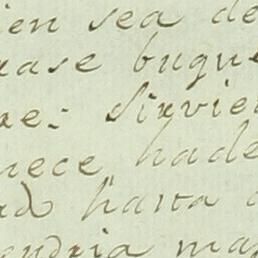 ien sea de
rase buque
re: Sirvien
nece hade
ad hasta
andria mas